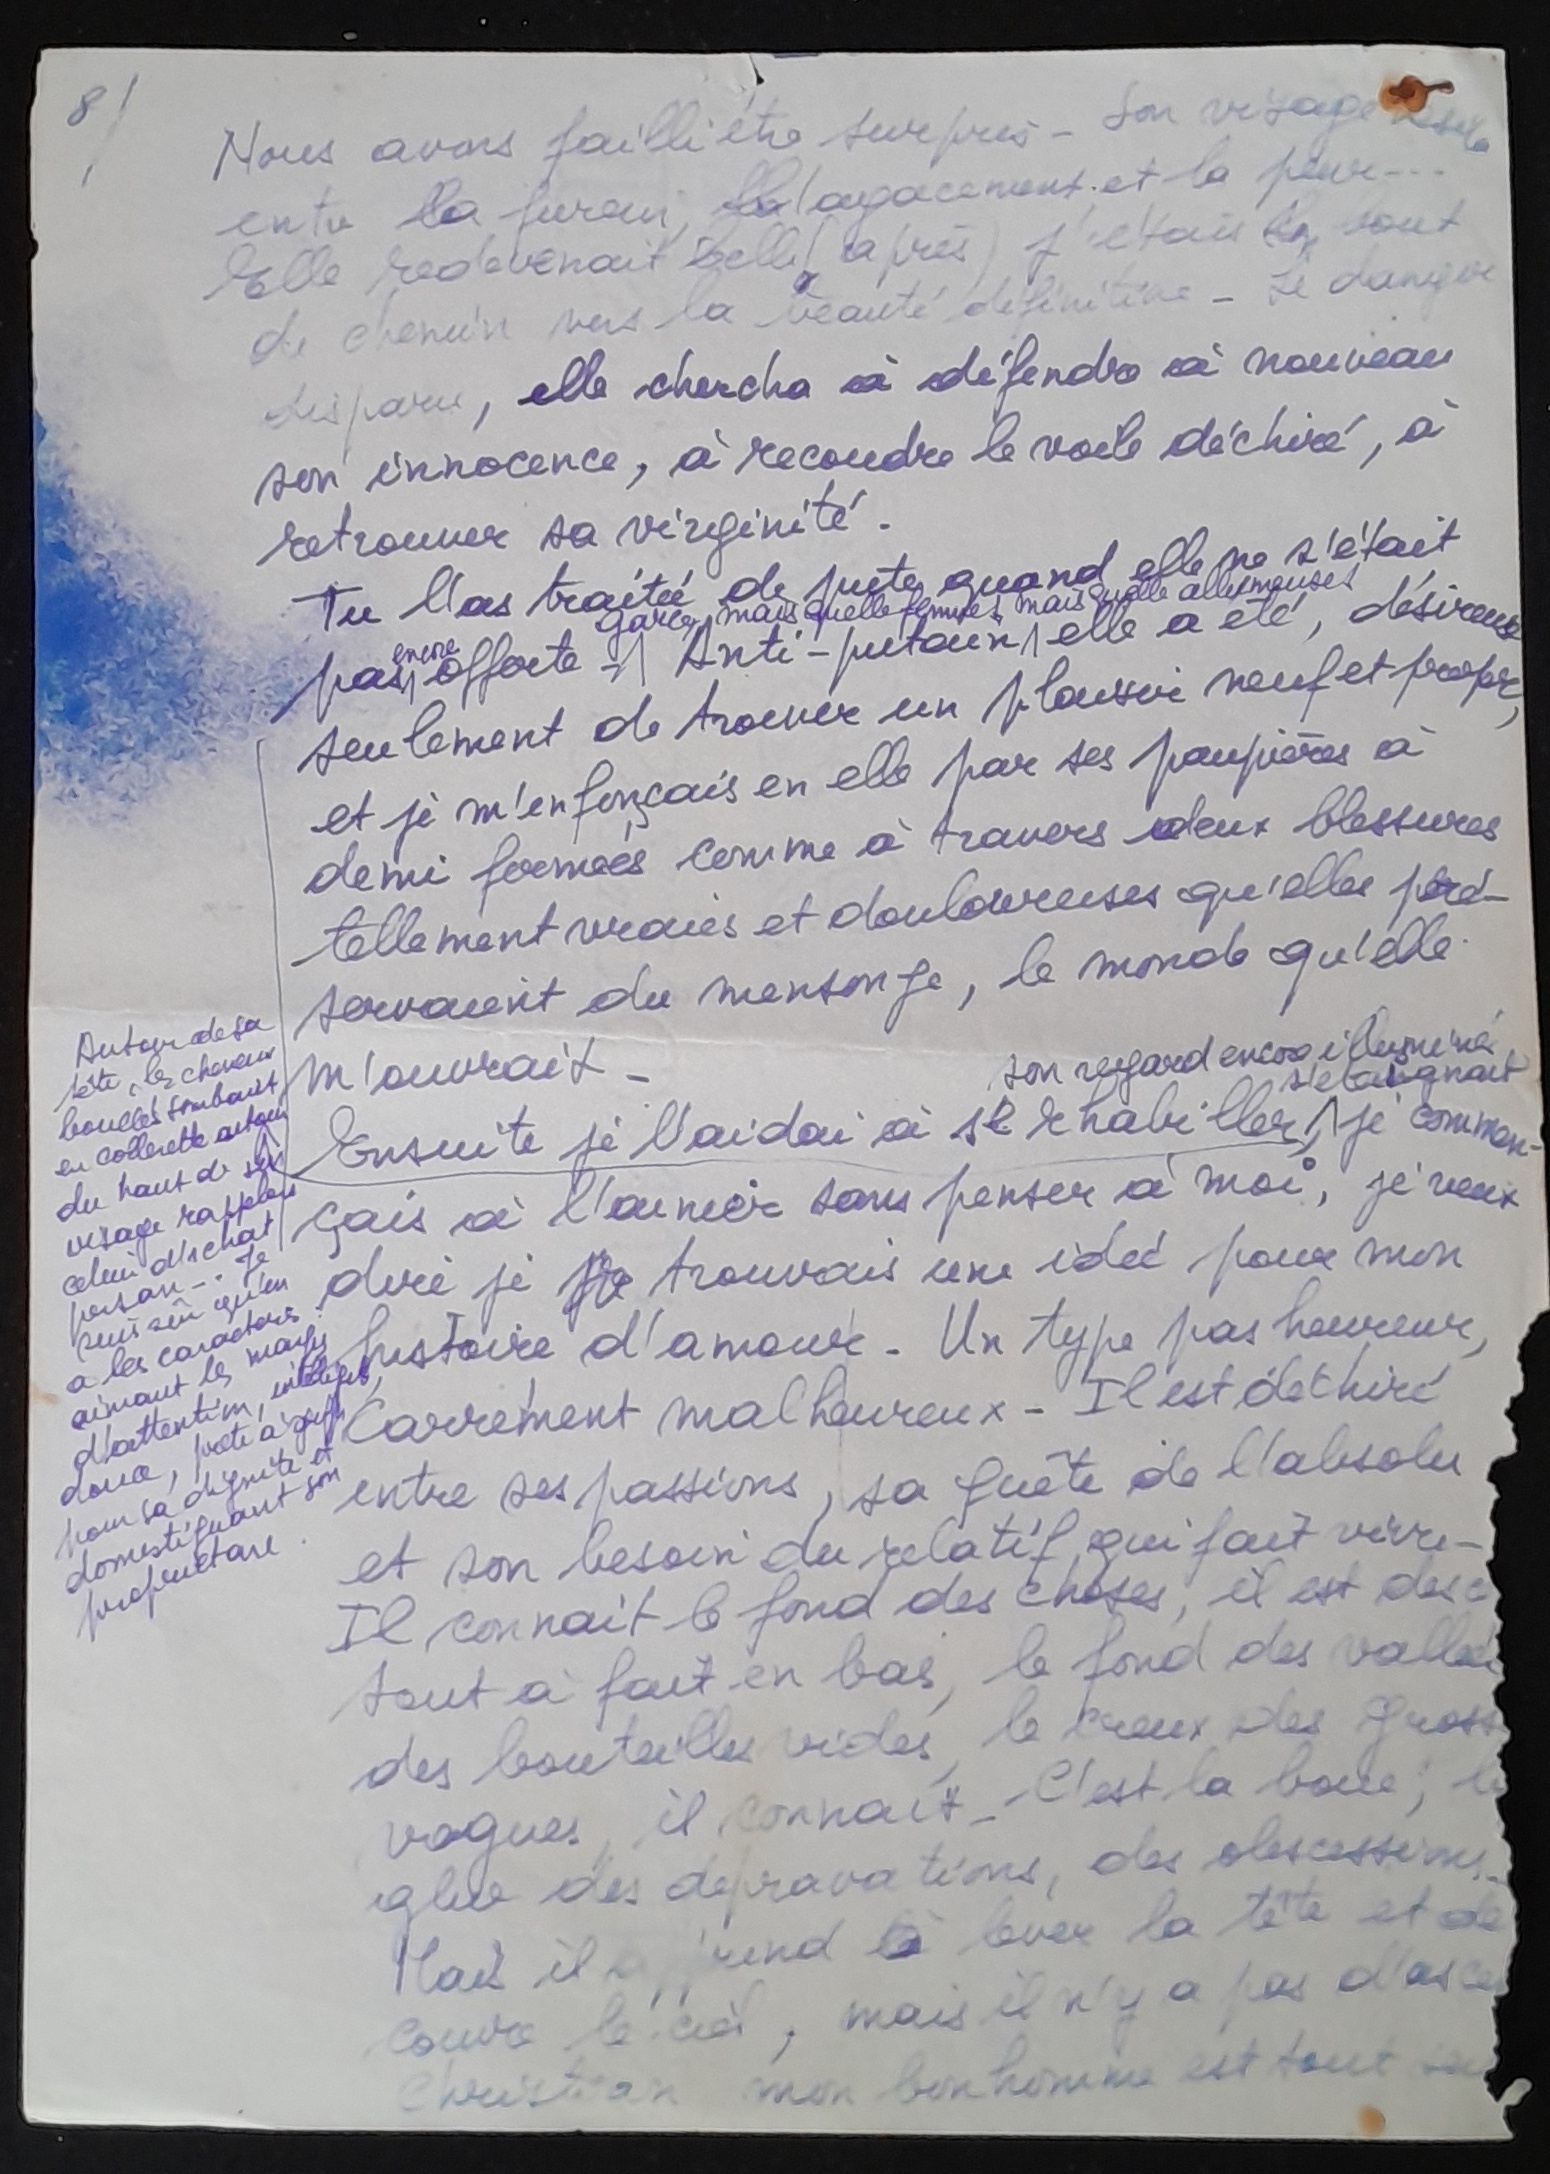 8/
Nous avons failli être surpris - Son visage
entre la fureur, l'agacement et la peur...
Elle redevenait belle (après) j'étais en bout
de chemin vers la beauté définitive - Le danger
disparu, elle chercha à défendre à nouveau
son innocence, à recoudre le voile déchiré, à
retrouver sa virginité.
Tu l'as traitée de pute quand elle ne s'était
garce, mais quelle femme, mais quelle allumeuse
pas encore offerte - Anti-putain, elle a été, désireuse
seulement de trouver un plaisir neuf et propre,
et je m'enfonçais en elle par ses paupières à
demi fermées comme à travers deux blessures
tellement vraies et douloureuses qu'elles pré-
servaient du mensonge, le monde qu'elle
m'ouvrait -
son regard encore illuminé
s'éloignait
Ensuite je l'aidai à se rhabiller, je commen-
çais à l'aimer sans penser à moi, je veux
dire je trouvais une idée pour mon
histoire d'amour - Un type pas heureux,
Carrément malheureux - Il est déchiré
entre ses passions, sa quête de l'absolu
et son besoin du relatif qui fait vivre -
Il connait le fond des choses, il est desc
tout à fait en bas, le fond des vallées
des bouteilles vides, le creux des gross
vagues, il connait - C'est la boue, la
glue des dépravations, des obscessions -
Mais il apprend à lever la tête et dé
couvre le ciel, mais il n'y a pas d'asce
Christian mon bonhomme est tout seu
Autour de sa
tête, les cheveux
bouclés tombant
en collerette autour
du haut de son
visage rappelait
celui d'1 chat
persan... Je
suis sûr qu'en
a les caractères:
aimant les marques
d'attention,
douce, prête à griffer
pour sa dignité et
domestiquant son
propriétaire.